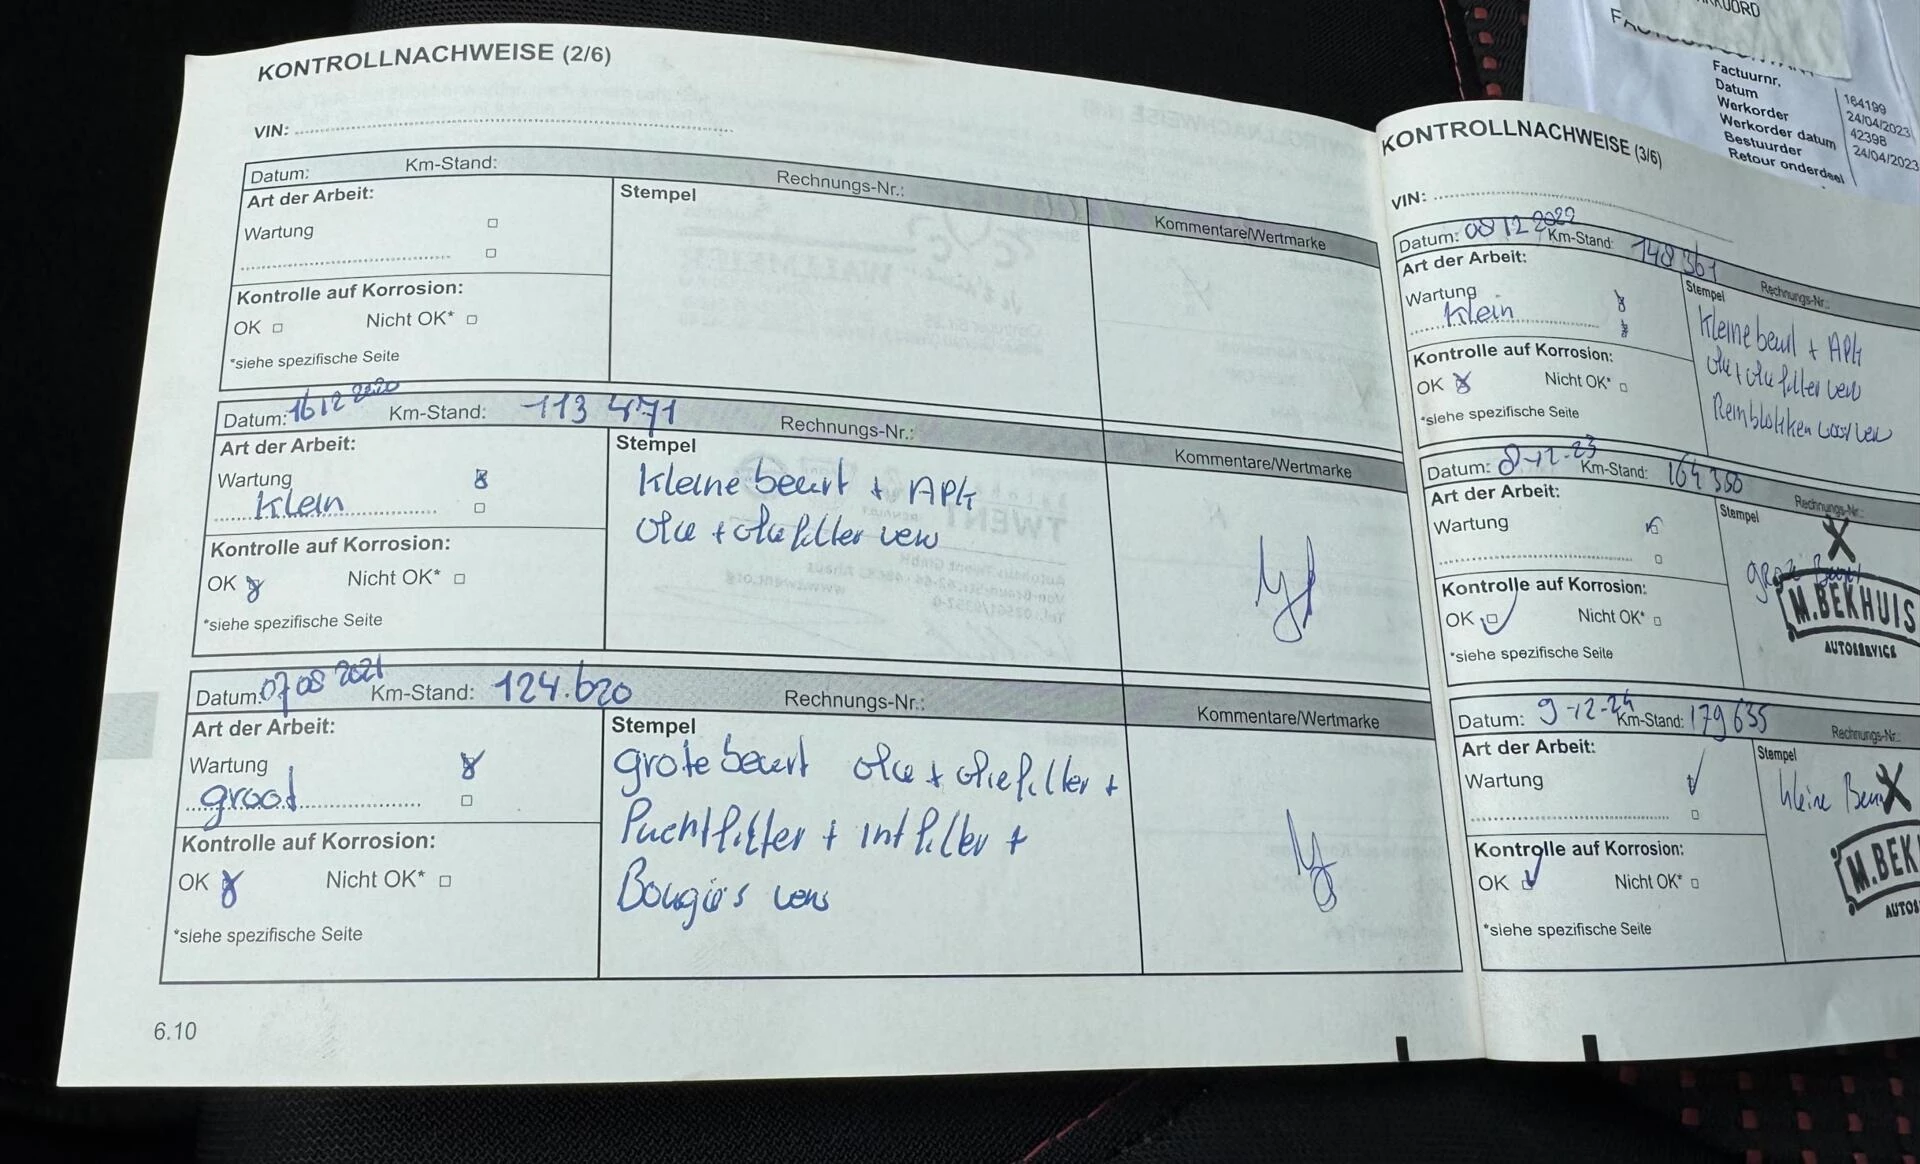 KONTROLLNACHWEISE (2/6)
VIN:
Datum: Km-Stand: Rechnungs-Nr.:
Art der Arbeit:
Stempel
Kommentare/Wertmarke
Wartung
Kontrolle auf Korrosion:
OK Nicht OK*
*siehe spezifische Seite
Datum: 16 12 2020 Km-Stand: 113 471 Rechnungs-Nr.:
Art der Arbeit:
Stempel
Kommentare/Wertmarke
Wartung
Klein
Kleine beurt + APK
olie + oliefilter verv
Kontrolle auf Korrosion:
OK Nicht OK*
*siehe spezifische Seite
Datum: 07 08 2021 Km-Stand: 124.620 Rechnungs-Nr.:
Art der Arbeit:
Stempel
Kommentare/Wertmarke
Wartung
groot
grote beurt olie + oliefilter +
Luchtfilter + int filter +
Bougies verv
Kontrolle auf Korrosion:
OK Nicht OK*
*siehe spezifische Seite
6.10
KONTROLLNACHWEISE (3/6)
VIN:
Datum: 08 12 2022 Km-Stand: 148 361 Rechnungs-Nr.:
Art der Arbeit:
Stempel
Wartung
Klein
Kleine beurt + APK
olie + oliefilter verv
Remblokken
Kontrolle auf Korrosion:
OK Nicht OK*
*siehe spezifische Seite
Datum: 8-12-23 Km-Stand: 164 350 Rechnungs-Nr.:
Art der Arbeit:
Stempel
Wartung
M.BEKHUIS
AUTOSERVICE
Kontrolle auf Korrosion:
OK Nicht OK*
*siehe spezifische Seite
Datum: 9-12-24 Km-Stand: 179 635 Rechnungs-Nr.:
Art der Arbeit:
Stempel
Wartung
kleine
M.BEK
Kontrolle auf Korrosion:
OK Nicht OK*
*siehe spezifische Seite
Factuurnr. 164199
Datum 24/04/2023
Werkorder 42398
Werkorder datum 24/04/2023
Bestuurder
Retour onderdeel